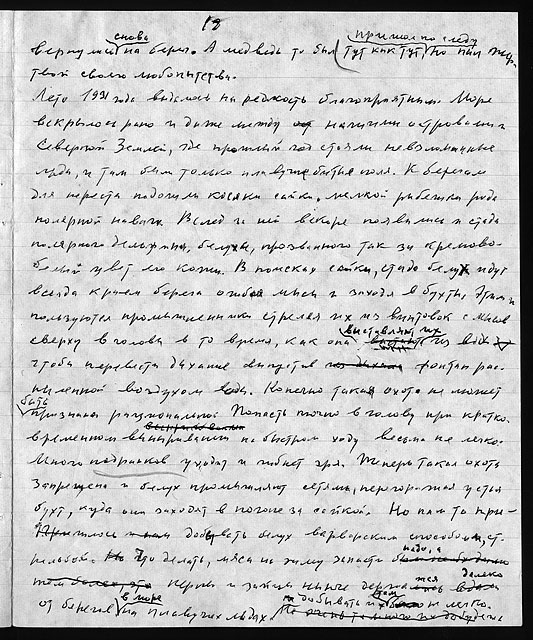 18
снова пришел по следу
вернулись на берег. А медведь то был тут как тут, но пал жер-
твой своего любопытства.
Лето 1931 года выдалось на редкость благоприятным. Море
вскрылось рано и даже между нашими островами и
Северной Землей, где прошлый год стояли невзломанные
льды, и там были только плавучие битые поля. К берегам
для нереста подошли косяки сайки, мелкой рыбешки рода
полярной наваги. Вслед за ней вскоре появились и стада
полярного дельфина, белухи, прозванного так за кремово-
белый цвет его кожи. В поисках сайки, стада белух идут
всегда краем берега огибая мысы и заходя в бухты. Этим и
пользуются промышленники стреляя их из винтовок с мысов
выставляют их
сверху в головы в то время, как они из воды
чтобы перевести дыхание выпустив фонтан рас-
пыленной воздухом воды. Конечно такая охота не может
быть
признана рациональной. Попасть точно в голову при кратко-
временном выныривании на быстром ходу весьма не легко.
Много подранков уходит и гибнет зря. Теперь такая охота
запрещена и белух промышляют сетями, перегораживая устья
бухт, куда они заходят в погоне за сайкой. Но нам то при-
шлось добывать белух варварским способом, ст-
рельбой. Что делать, мяса на зиму запасти
надо, а
тем более, что нерпы и зайцы нынче держа
тся далеко
от берегов в море на плавучих льдах.
и добывать их там не легко.